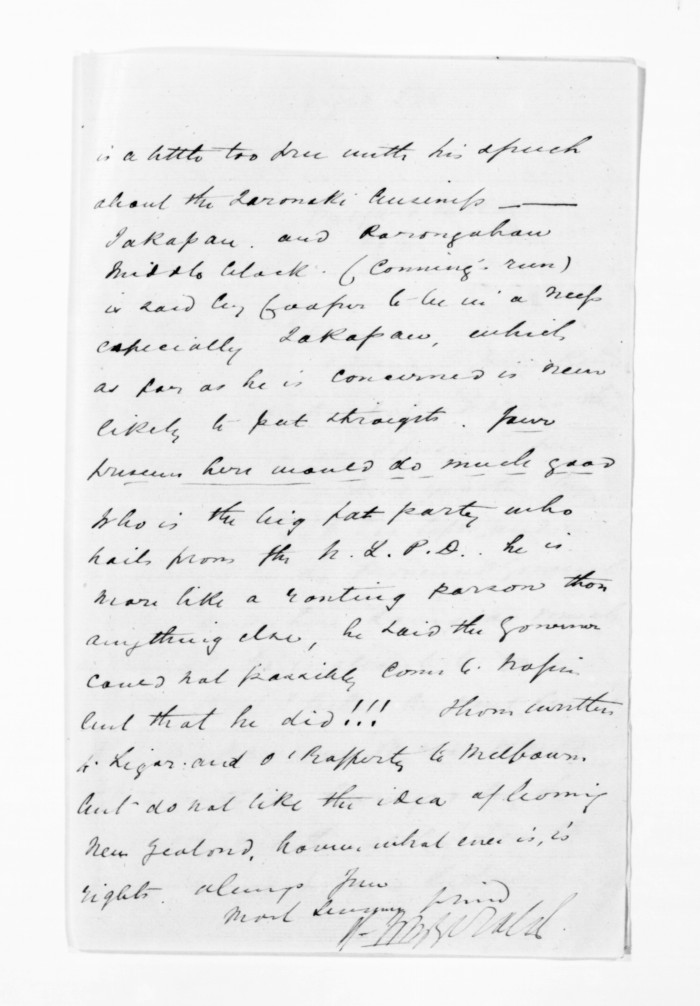 is a little too free with his speech
about the Taronaki business —
Takapau. and Parongahau
Middle block. (Conning's run)
is said by Cooper to be in a mess
especially Takapau, which
as far as he is concerned is never
likely to put straight. Your
presence here would do much good
Who is the big fat party who
hails from the N. L. P. D.. he is
more like a ranting parson than
anything else, he said the Governor
could not possibly come to Napier
but that he did!!! I have written
to Ligar. and O'Rafferty to Melbourne
but do not like the idea of leaving
New Zealand, however what ever is, is
right. always your
Most sincere friend
FitzGerald